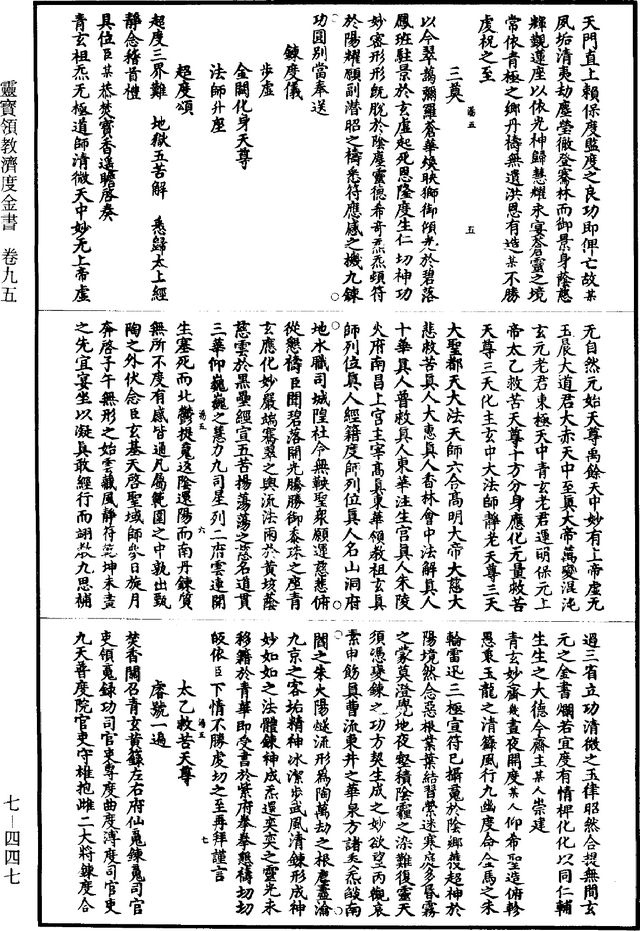 靈寶領教濟度金書 卷九五
七—四四七
天門直上賴保度監度之良功即俾亡故某
風垢清夷劫塵瑩徹登騫林而御景身蔭慈
輝觀蓮座以依光神歸慧耀永宴蒼靈之境
常依青極之鄉丹禱無遺洪恩有造某不勝
虔祝之至
三奠
以今翠靄彌羅蒼華煥映獅御傾光於碧落
鳳班駐景於玄虛起死恩隆度生仁切神功
妙密形形既脫於陰塵靈德希奇炁炁頓符
於陽耀願副潛昭之禱悉符應感之機九鍊
功圓別當奉送
鍊度儀
步虛
金闕化身天尊
法師升座
超度頌
超度三界難 地獄五苦解 悉歸太上經
靜念稽首禮
具位臣某恭焚寶香遥瞻啓奏
青玄祖炁无極道師清微天中妙无上帝虛
无自然元始天尊禹餘天中妙有上帝虛无
玉晨大道君大赤天中至真大帝萬變混沌
玄元老君東極天中青玄老君運明保元上
帝太乙救苦天尊十方分身應化无量救苦
天尊三天化主玄中大法師靜老天尊三天
大聖都天大法天師六合高明大帝大慈大
悲救苦真人大惠真人香林會中法解真人
十華真人普救真人東華注生宫真人朱陵
火府南昌上宫主宰高真東華領教祖玄真
師列位真人經籍度師列位真人名山洞府
地水職司城隍社令无鞅聖衆願運慈悲俯
從懇禱臣聞碧落開光騰騰御黍珠之座青
玄應化妙嚴端騫翠之輿流法雨於黄垓蔭
慈雲於黑壘經宣五苦揚蕩蕩之慈名道貫
三華仰巍巍之慧力九司星列二府雲連開
生塞死而北鬱提䰟返陰還陽而南丹鍊質
無所不度有感皆通凡屬範圍之中孰出甄
陶之外伏念臣玄基天啓聖域師參日旋月
奔啓子午無形之始雲藏風靜符乾坤未畫
之先宜宴坐以凝真敢經行而詡教九思補
過三省立功清微之玉律昭然合規無間玄
元之金書爛若宜度有情裨化化以同仁輔
生生之大德今齋主某人崇建
青玄妙齋幾晝夜開度某人仰希聖造俯軫
愚衷玉龍之清籙風行九幽度命金馬之朱
輪雷迅三極宣符已攝䰟於陰鄉獲超神於
陽境然念惡根業葉結習縈迷寒庭多昏霧
之蒙莫澄覺地夜壑積陰霾之染難復靈天
須憑變鍊之功方契生成之妙欲望丙觀哀
素申飭真曹流東井之華泉方諸炁炁燄南
閶之朱火陽燧流形爲陶萬劫之根塵盡瀹
九京之客垢精神冰潔步武風清鍊形成神
妙如如之法體鍊神成炁還奕奕之靈光永
移籍於青華即受書於紫府拳拳懇禱切切
皈依臣下情不勝虔切之至再拜謹言
太乙救苦天尊
寳號一遍
焚香關召青玄黄籙左右府仙䰟鍊䰟司官
吏領䰟錄功司官吏專度曲度溥度司官吏
九天普度院官吏守雄抱雌二大將鍊度合